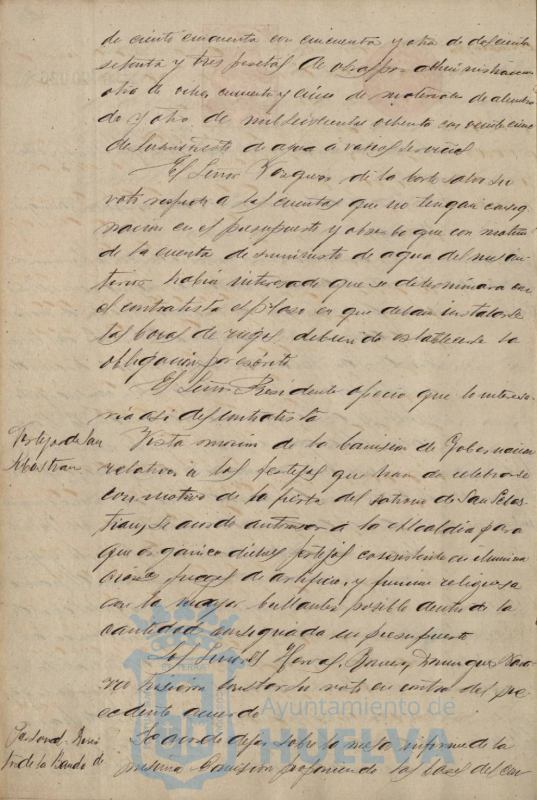 de ciento cincuenta con cincuenta y otra de doscientas
setenta y tres pesetas de obras por administracion
otra de ocho cuarenta y cinco de materiales de alumbra
do y otra de mil seiscientas ochenta con veinte cinco
de suministro de agua a varios servicios
El Señor Vazquez de la Corte salva su
voto respecto a las cuentas que no tengan consig
nacion en el presupuesto y observó que con motivo
de la cuenta de suministro de agua del mes an
terior habia interesado que se determinara con
el contratista el plazo en que debian instalarse
las bocas de riego, debiendo establecerse la
obligacion por escrito
El Señor Presidente ofreció que lo interesa
ria asi del contratista
Festejos de San
Sebastian
Vista mocion de la Comision de Gobernacion
relativa a los festejos que han de celebrarse
con motivo de la fiesta del patrono de San Sebas
tian, se acordó autorizar á la Alcaldia para
que organice dichos festejos consistente en ilumina
ciones fuegos de artificio, y funcion religiosa
con la mayor brillantez posible dentro de la
cantidad consignada en presupuesto
Los Señores Hervas, Dominguez
hicieron constar su voto en contra del pre
cedente acuerdo
de la Banda de
Se acordó dejar sobre la mesa informe de la
misma Comision proponiendo las bases del con
Ayuntamiento de
HUELVA